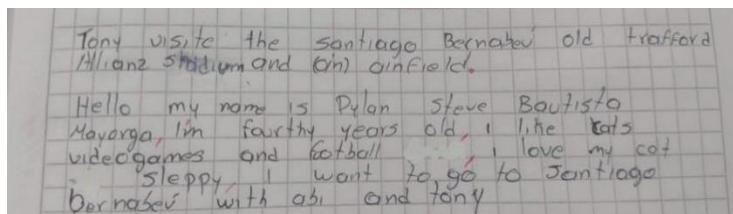 Tony visite the santiago Bernabeú old trafford
Allianz Stadium and (in) ainfield.
Hello my name is Dylan Steve Bautista
Mayorga, I'm fourthy years old, I like cats
videogames and football I love my cat
Sleppy, I want to go to Santiago
bernabeú with abi and tony